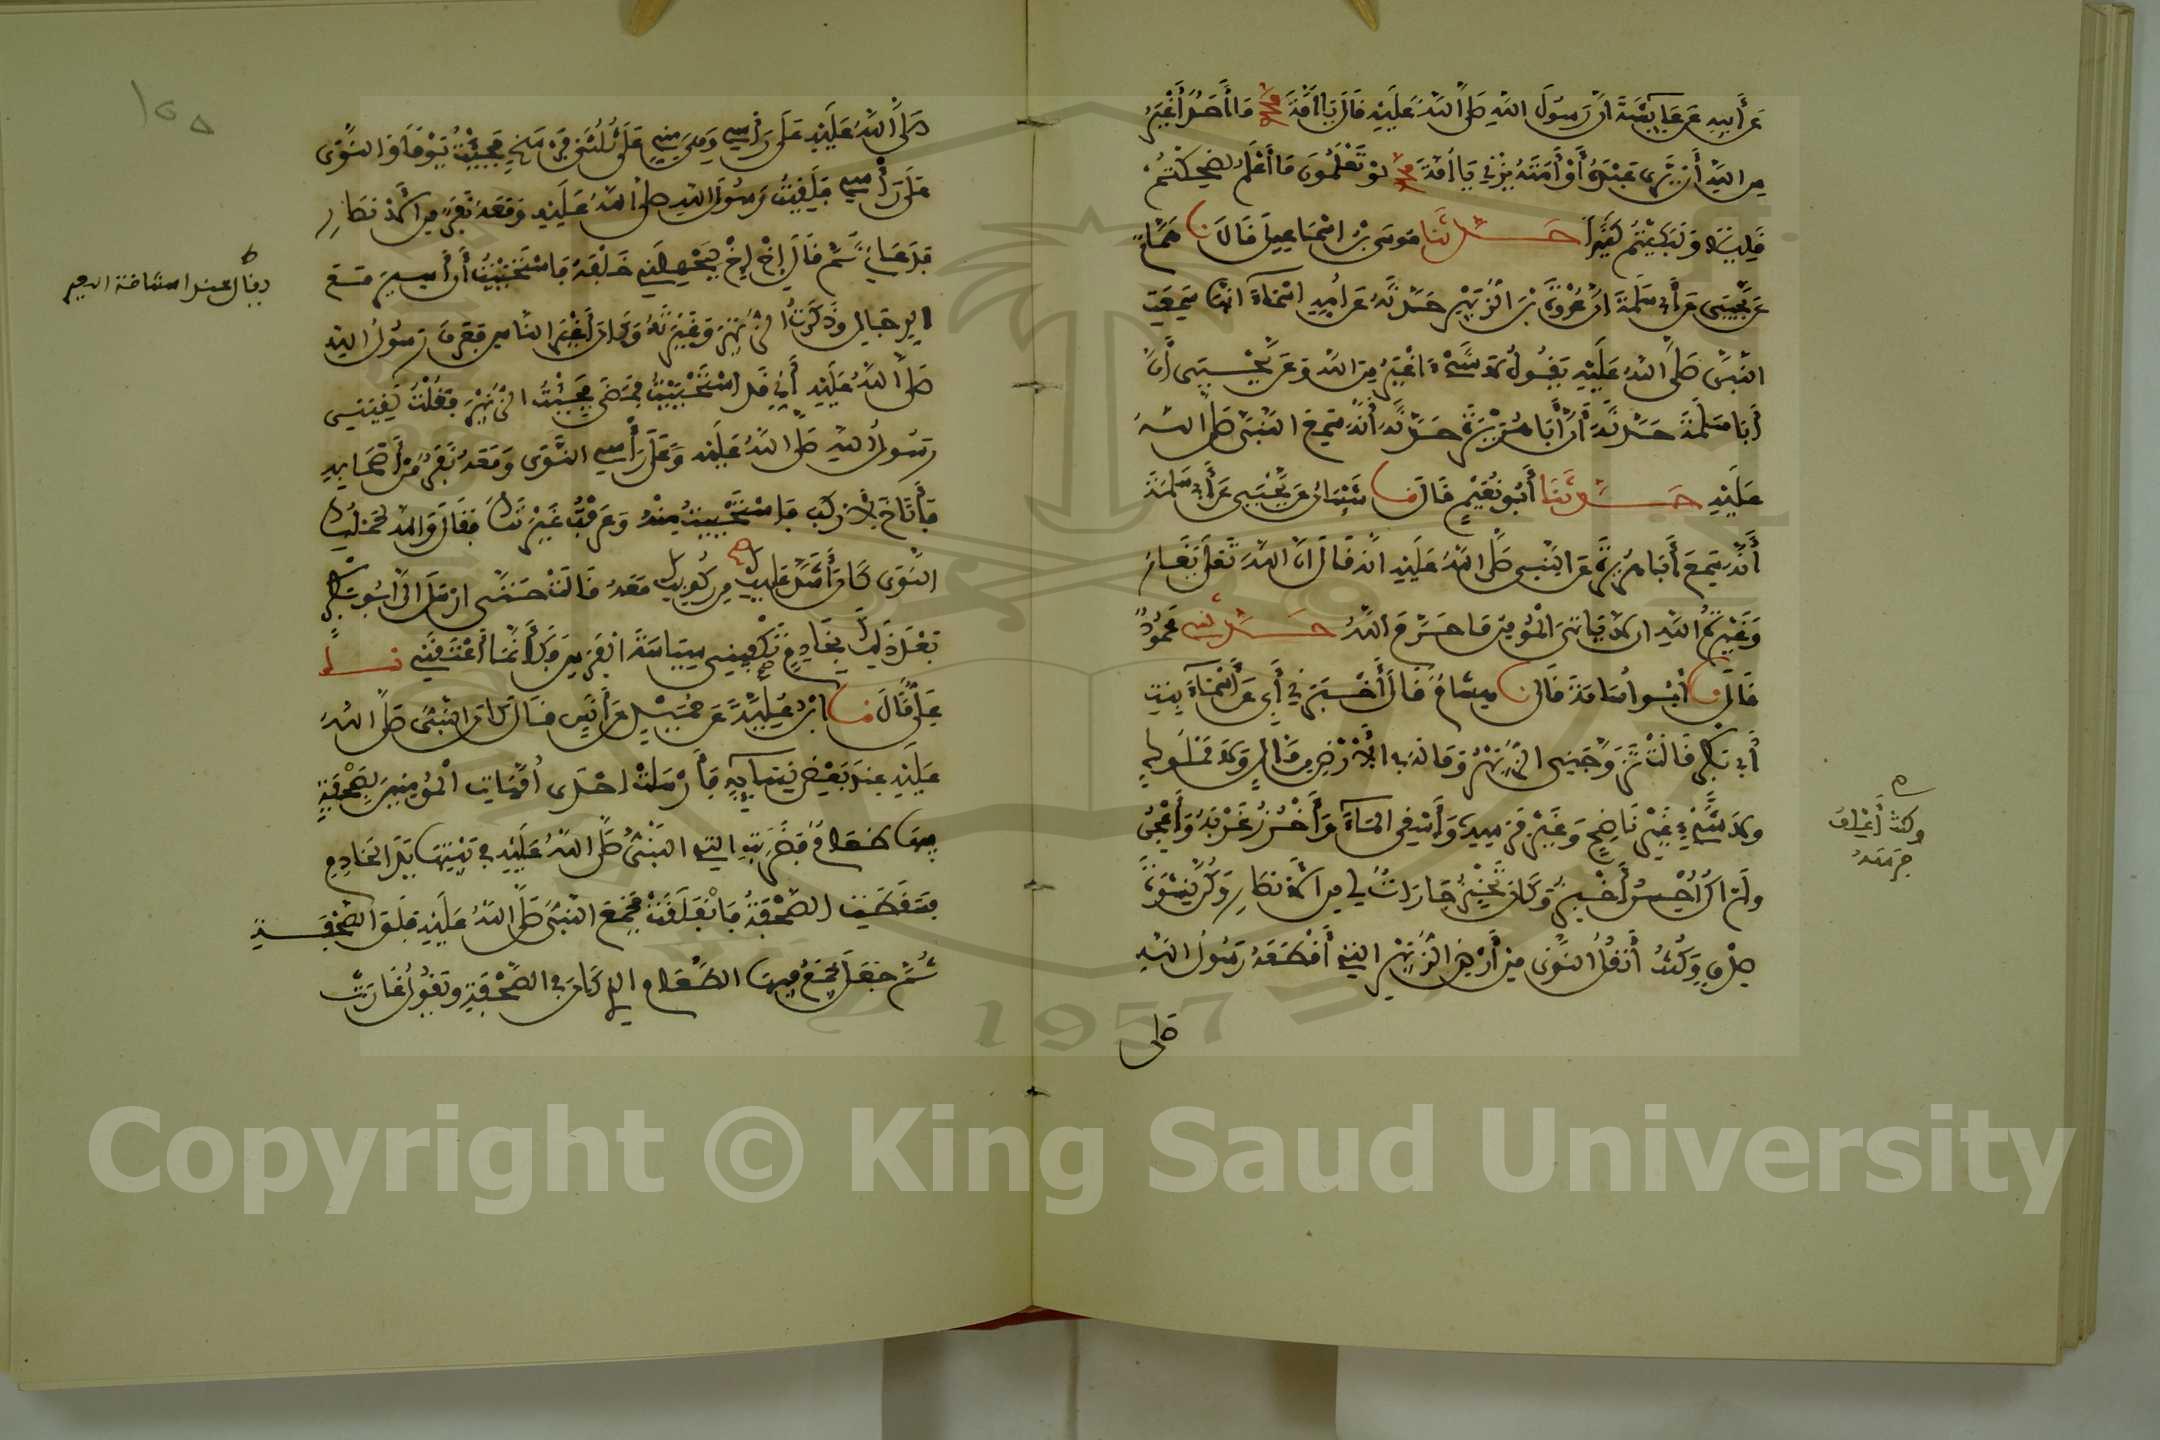 عَنْ أَبِيهِ عَنْ عَايِشَةَ أَنَّ رَسُولَ اللهِ صَلَّى اللهُ عَلَيْهِ قَالَ يَا أُمَّةَ مُحَمَّدٍ مَا أَحَدٌ أَغْيَرُ
مِنَ اللهِ أَنْ يَرَى عَبْدَهُ أَوْ أَمَتَهُ يَزْنِي يَا أُمَّةَ مُحَمَّدٍ لَوْ تَعْلَمُونَ مَا أَعْلَمُ لَضَحِكْتُمْ
قَلِيلًا وَلَبَكَيْتُمْ كَثِيرًا حَدَّثَنَا مُوسَى بْنُ إِسْمَاعِيلَ قَالَ نَا هَمَّامٌ
عَنْ يَحْيَى عَنْ أَبِي سَلَمَةَ أَنَّ عُرْوَةَ بْنَ الزُّبَيْرِ حَدَّثَهُ عَنْ أُمِّهِ أَسْمَاءَ أَنَّهَا سَمِعَتِ
النَّبِيَّ صَلَّى اللهُ عَلَيْهِ يَقُولُ لَا شَيْءَ أَغْيَرُ مِنَ اللهِ وَعَنْ يَحْيَى أَنَّ
أَبَا سَلَمَةَ حَدَّثَهُ أَنَّ أَبَا هُرَيْرَةَ حَدَّثَهُ أَنَّهُ سَمِعَ النَّبِيَّ صَلَّى اللهُ
عَلَيْهِ حَدَّثَنَا أَبُو نُعَيْمٍ قَالَ نَا شَيْبَانُ عَنْ يَحْيَى عَنْ أَبِي سَلَمَةَ
أَنَّهُ سَمِعَ أَبَا هُرَيْرَةَ عَنِ النَّبِيِّ صَلَّى اللهُ عَلَيْهِ أَنَّهُ قَالَ إِنَّ اللهَ تَعَلَى يَغَارُ
وَغَيْرَةُ اللهِ أَنْ لَا يَاتِيَ الْمُؤْمِنُ مَا حَرَّمَ اللهُ حَدَّثَنِي مَحْمُودٌ
قَالَ نَا أَبُو أُسَامَةَ قَالَ نَا هِشَامٌ قَالَ أَخْبَرَنِي أَبِي عَنْ أَسْمَاءَ بِنْتِ
أَبِي بَكْرٍ قَالَتْ تَزَوَّجَنِي الزُّبَيْرُ وَمَا لَهُ فِي الْأَرْضِ مِنْ مَالٍ وَلَا مَمْلُوكٍ
وَلَا شَيْءٍ غَيْرَ نَاضِحٍ وَغَيْرَ فَرَسِهِ وَأَسْتَقِي الْمَاءَ وَأَخْرُزُ غَرْبَهُ وَأَعْجِنُ
وَلَمْ أَكُنْ أُحْسِنُ أَخْبِزُ وَكَانَ تَخْبِزُ جَارَاتٌ لِي مِنَ الْأَنْصَارِ وَكُنَّ نِسْوَةَ
صِدْقٍ وَكُنْتُ أَنْقُلُ النَّوَى مِنْ أَرْضِ الزُّبَيْرِ الَّتِي أَقْطَعَهُ رَسُولُ اللهِ
صلى
وكنت أعلف
فرسه
١٥٥
صَلَّى اللهُ عَلَيْهِ عَلَى رَأْسِي وَهِيَ مِنِّي عَلَى ثُلُثَيْ فَرْسَخٍ فَجِئْتُ يَوْمًا وَالنَّوَى
عَلَى رَأْسِي فَلَقِيتُ رَسُولَ اللهِ صَلَّى اللهُ عَلَيْهِ وَمَعَهُ نَفَرٌ مِنَ الْأَنْصَارِ
فَدَعَانِي ثُمَّ قَالَ إِخْ إِخْ لِيَحْمِلَنِي خَلْفَهُ فَاسْتَحْيَيْتُ أَنْ أَسِيرَ مَعَ
الرِّجَالِ وَذَكَرْتُ الزُّبَيْرَ وَغَيْرَتَهُ وَكَانَ أَغْيَرَ النَّاسِ فَعَرَفَ رَسُولُ اللهِ
صَلَّى اللهُ عَلَيْهِ أَنِّي قَدِ اسْتَحْيَيْتُ فَمَضَى فَجِئْتُ الزُّبَيْرَ فَقُلْتُ لَقِيَنِي
رَسُولُ اللهِ صَلَّى اللهُ عَلَيْهِ وَعَلَى رَأْسِي النَّوَى وَمَعَهُ نَفَرٌ مِنْ أَصْحَابِهِ
فَأَنَاخَ لِأَرْكَبَ فَاسْتَحْيَيْتُ مِنْهُ وَعَرَفْتُ غَيْرَتَكَ فَقَالَ وَاللهِ لَحَمْلُكِ
النَّوَى كَانَ أَشَدَّ عَلَيَّ مِنْ رُكُوبِكِ مَعَهُ قَالَتْ حَتَّى أَرْسَلَ إِلَيَّ أَبُو بَكْرٍ
بَعْدَ ذَلِكَ بِخَادِمٍ تَكْفِينِي سِيَاسَةَ الْفَرَسِ فَكَأَنَّمَا أَعْتَقَنِي نا
عَلِيٌّ قَالَ نَا ابْنُ عُلَيَّةَ عَنْ حُمَيْدٍ عَنْ أَنَسٍ قَالَ كَانَ النَّبِيُّ صَلَّى اللهُ
عَلَيْهِ عِنْدَ بَعْضِ نِسَايِهِ فَأَرْسَلَتْ إِحْدَى أُمَّهَاتِ الْمُؤْمِنِينَ بِصَحْفَةٍ
فِيهَا طَعَامٌ فَضَرَبَتِ الَّتِي النَّبِيُّ صَلَّى اللهُ عَلَيْهِ فِي بَيْتِهَا يَدَ الْخَادِمِ
فَسَقَطَتِ الصَّحْفَةُ فَانْفَلَقَتْ فَجَمَعَ النَّبِيُّ صَلَّى اللهُ عَلَيْهِ فِلَقَ الصَّحْفَةِ
ثُمَّ جَعَلَ يَجْمَعُ فِيهَا الطَّعَامَ الَّذِي كَانَ فِي الصَّحْفَةِ وَيَقُولُ غَارَتْ
يقال عند اناخة البعير
Copyright © King Saud University
1957